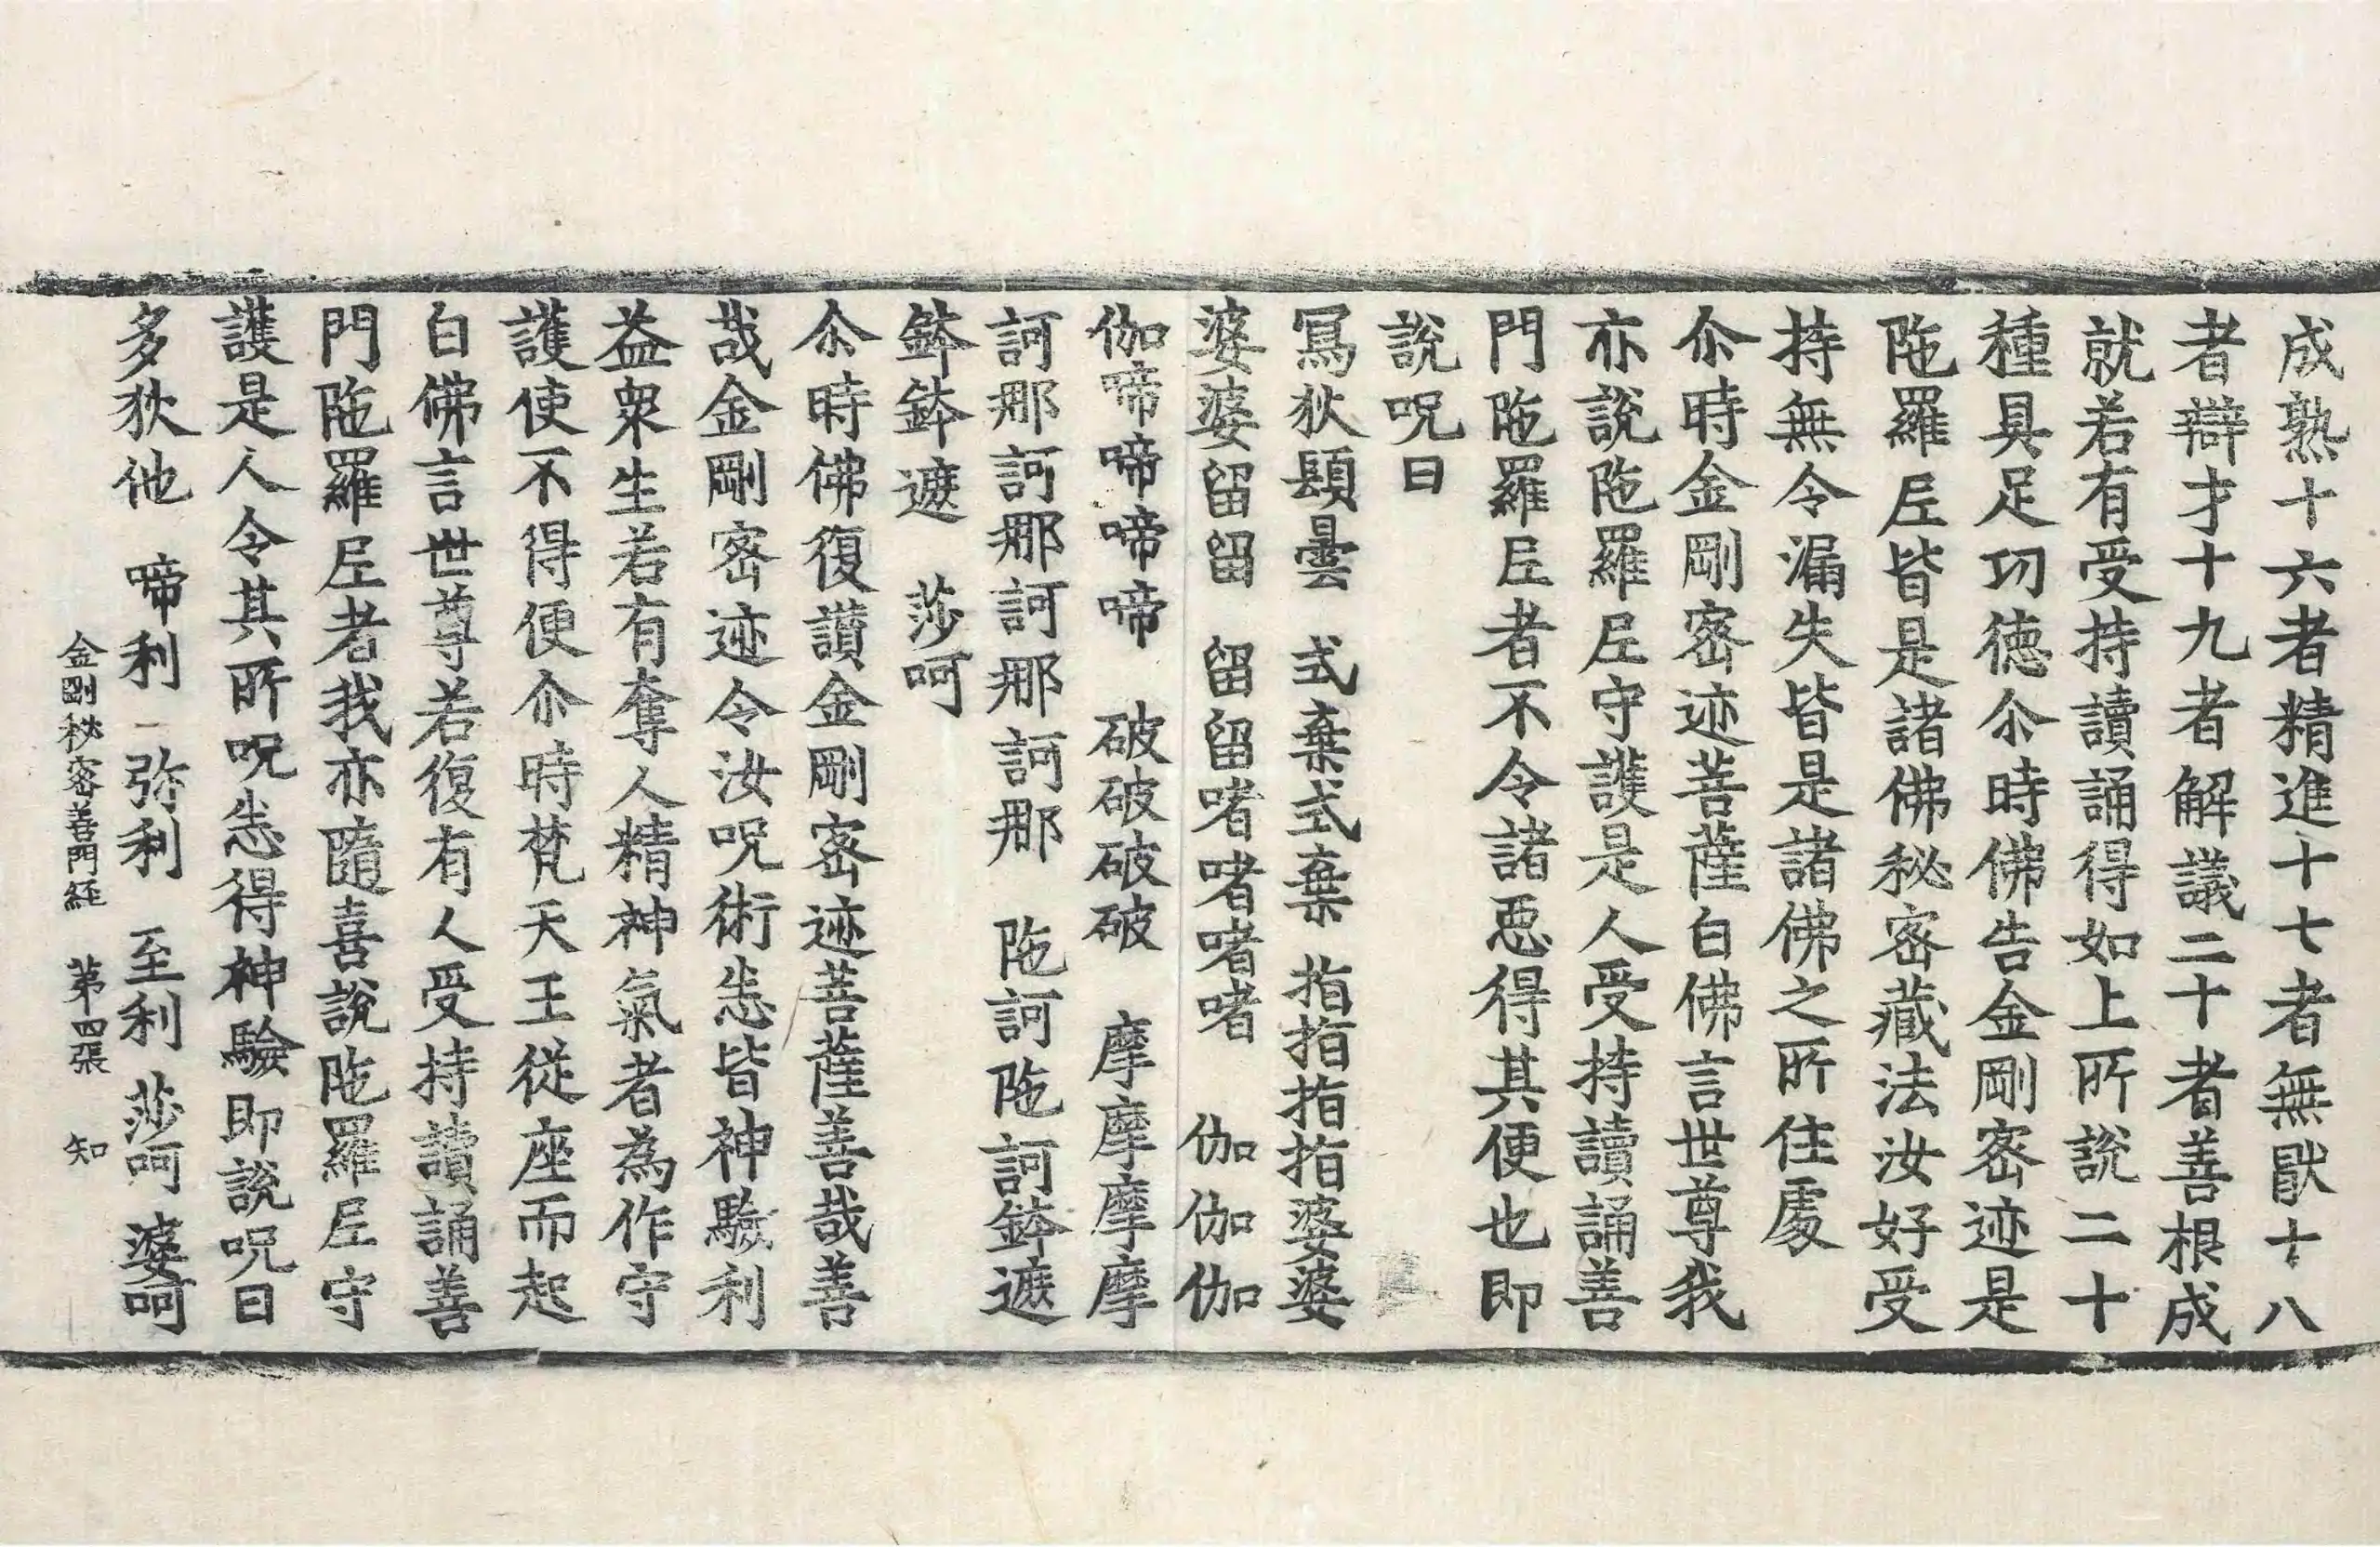 成熟十六者精進十七者無猒十八
者辯才十九者解議二十者善根成
就若有受持讀誦得如上所說二十
種具足功德尒時佛告金剛密迹是
陁羅尼皆是諸佛秘密藏法汝好受
持無令漏失皆是諸佛之所住處
尒時金剛密迹菩薩白佛言世尊我
亦說陁羅尼守護是人受持讀誦善
門陁羅尼者不令諸惡得其便也即
說呪曰
冩狄䫌曇 式棄式棄 指指指指婆婆
婆婆留留 留留啫啫啫啫 伽伽伽
伽啼啼啼啼 破破破破 摩摩摩摩
訶那訶那訶那訶那 陁訶陁訶鉢遮
鉢鉢遮 莎呵
尒時佛復讚金剛密迹菩薩善哉善
哉金剛密迹令汝呪術悉皆神驗利
益衆生若有奪人精神氣者為作守
護使不得便尒時梵天王從座而起
白佛言世尊若復有人受持讀誦善
門陁羅尼者我亦隨喜說陁羅尼守
護是人令其所呪悉得神驗即說呪曰
多狄他 啼利 弥利 至利 莎呵 婆呵
金剛秘密善門經 第四張 知